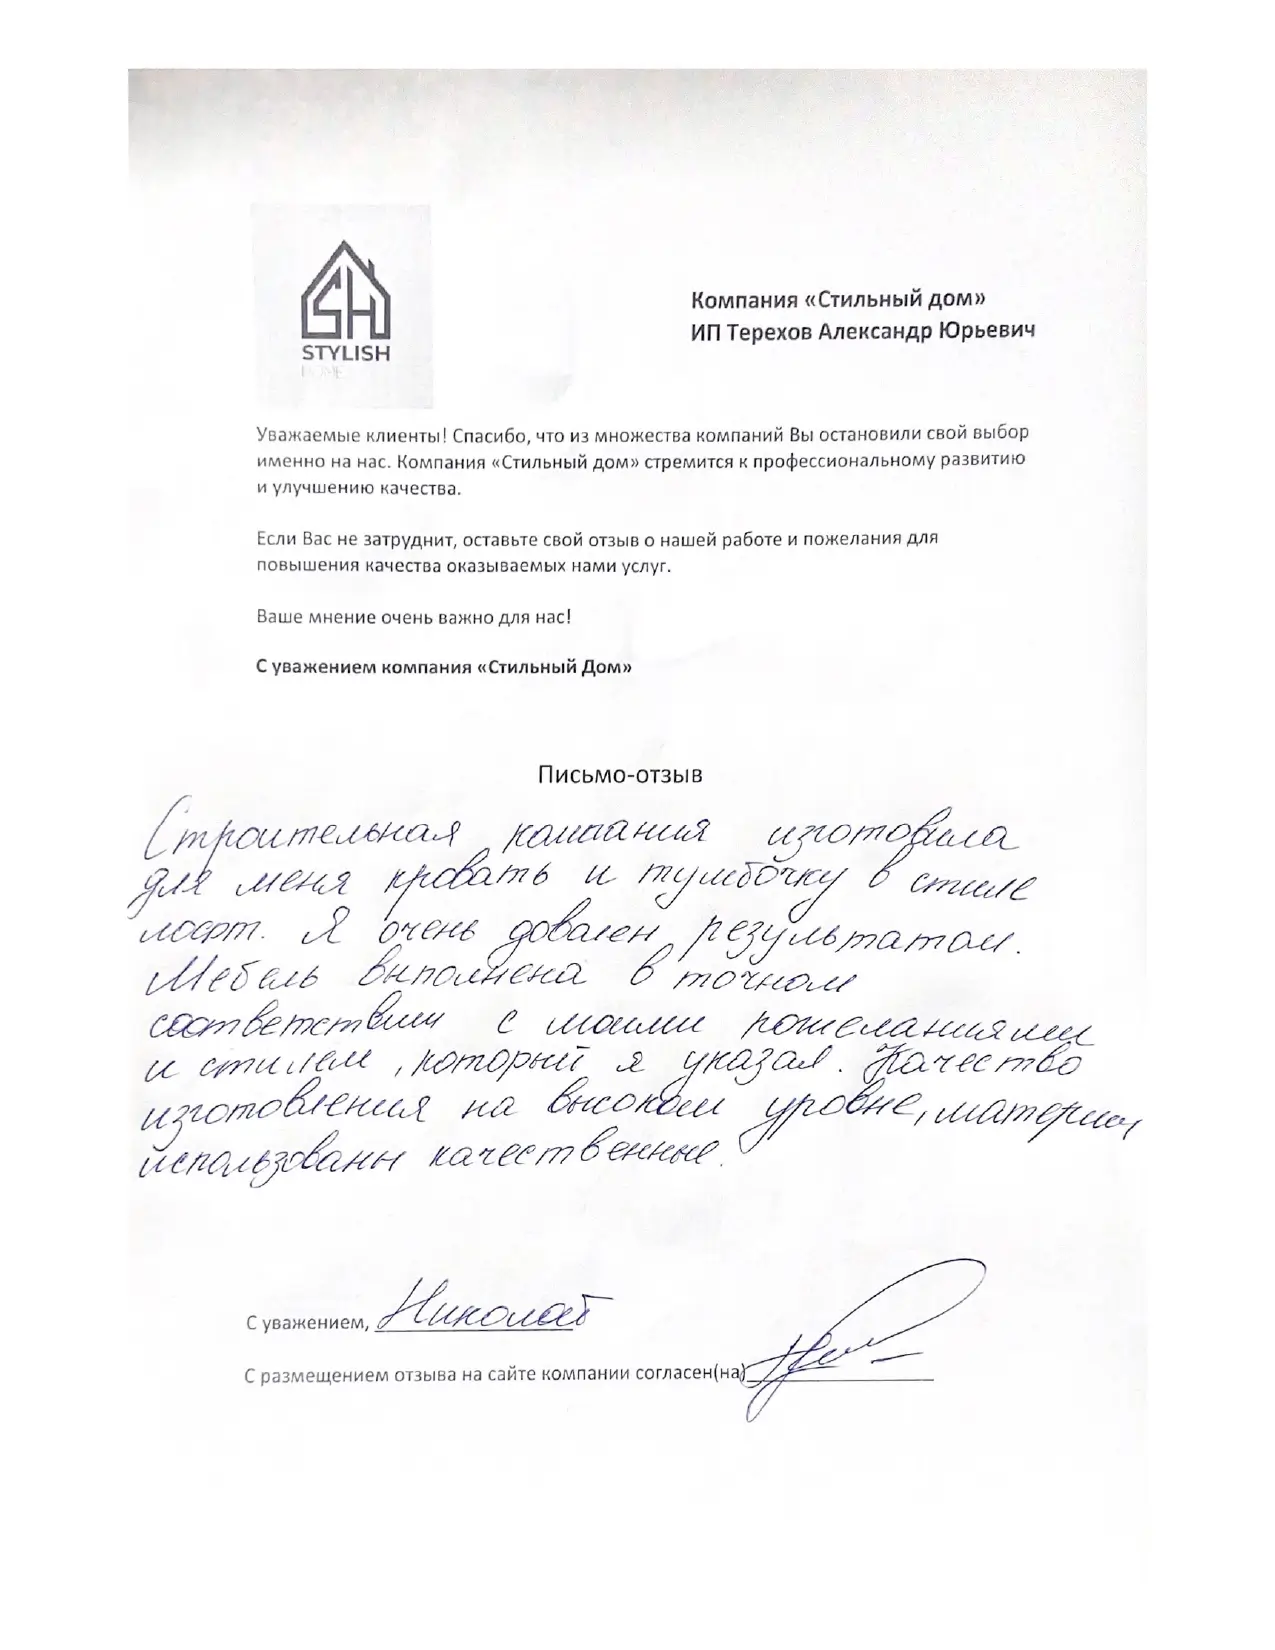 STYLISH
HOME
Компания «Стильный дом»
ИП Терехов Александр Юрьевич
Уважаемые клиенты! Спасибо, что из множества компаний Вы остановили свой выбор
именно на нас. Компания «Стильный дом» стремится к профессиональному развитию
и улучшению качества.
Если Вас не затруднит, оставьте свой отзыв о нашей работе и пожелания для
повышения качества оказываемых нами услуг.
Ваше мнение очень важно для нас!
С уважением компания «Стильный Дом»
Письмо-отзыв
Строительная компания изготовила
для меня кровать и тумбочку в стиле
лофт. Я очень доволен результатом.
Мебель выполнена в точном
соответствии с моими пожеланиями
и стилем, который я указал. Качество
изготовления на высоком уровне, материалы
использованы качественные.
С уважением, Николай
С размещением отзыва на сайте компании согласен(на)